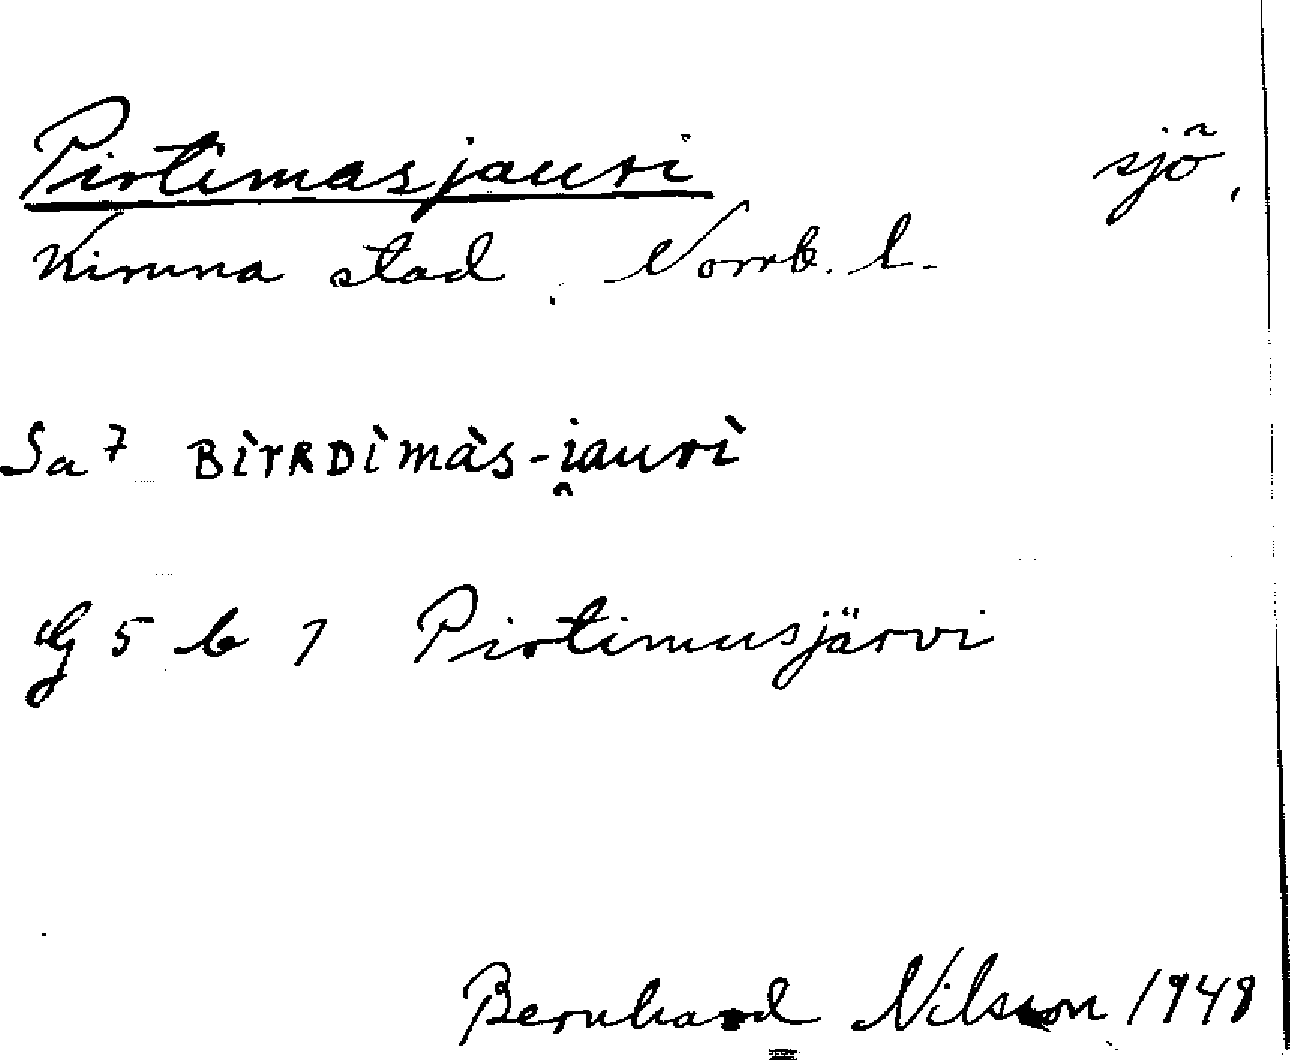 Pirtimasjauri sjö,
Kiruna stad, Norrb. l.
Sa 7 BÌrRDÌmàs-i̯aurì
G 5 b 1 Pirtimusjärvi
Bernhard Nilsson 1948